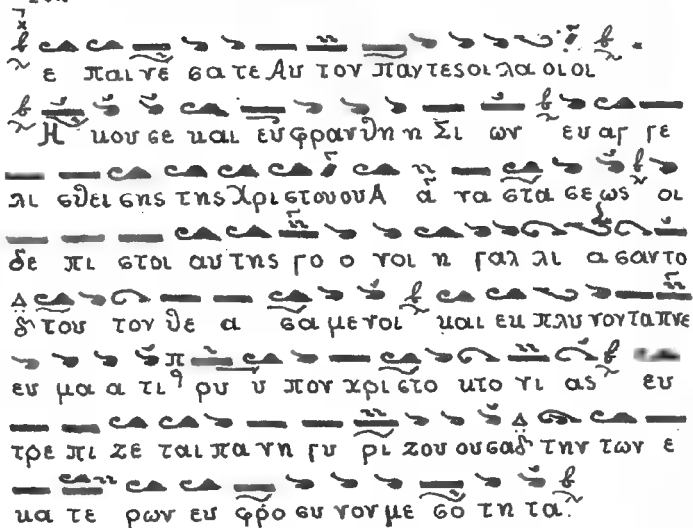 ε παι νε σα τε Αυ τον παντες οι λα οι οι
Η κου σε και ευφρανθη η Σι ων ευ αγ γε
λι σθει σης της Χρι στου ου Α ἀ να στα σε ως οι
δε πι στοι αυ της γο ο νοι η γαλ λι α σαντο
του τον θε α σα με νοι και εκ πλυ νον τα πνε
ευ μα α τι ρυ υ πον χρι στο κτο νι ας ευ
τρε πι ζε ται πα νη γυ ρι ζου ουσα την των ε
κα τε ρων ευ φρό συ νον με σο τη τα.